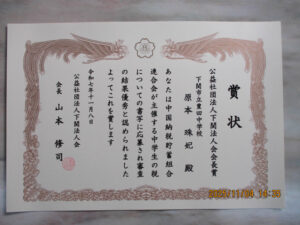 賞状
公益社団法人下関法人会会長賞
下関市立豊田中学校
原本 珠妃 殿
あなたは中国納税貯蓄組合
連合会が主催する中学生の税
についての書写に応募され審査
の結果優秀と認められました
よってこれを賞します
令和七年十一月八日
公益社団法人下関法人会
会長 山本修司